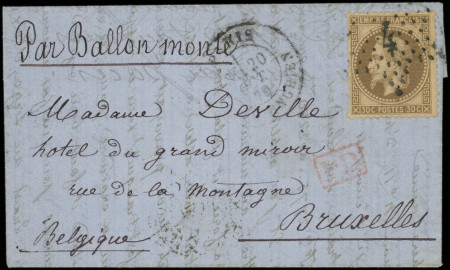 Par Ballon monté
Madame Deville
hotel du grand miroir
rue de la montagne
Bruxelles
Belgique
EMPIRE FRANÇAIS
30C POSTES 30C
4
20
P.D.